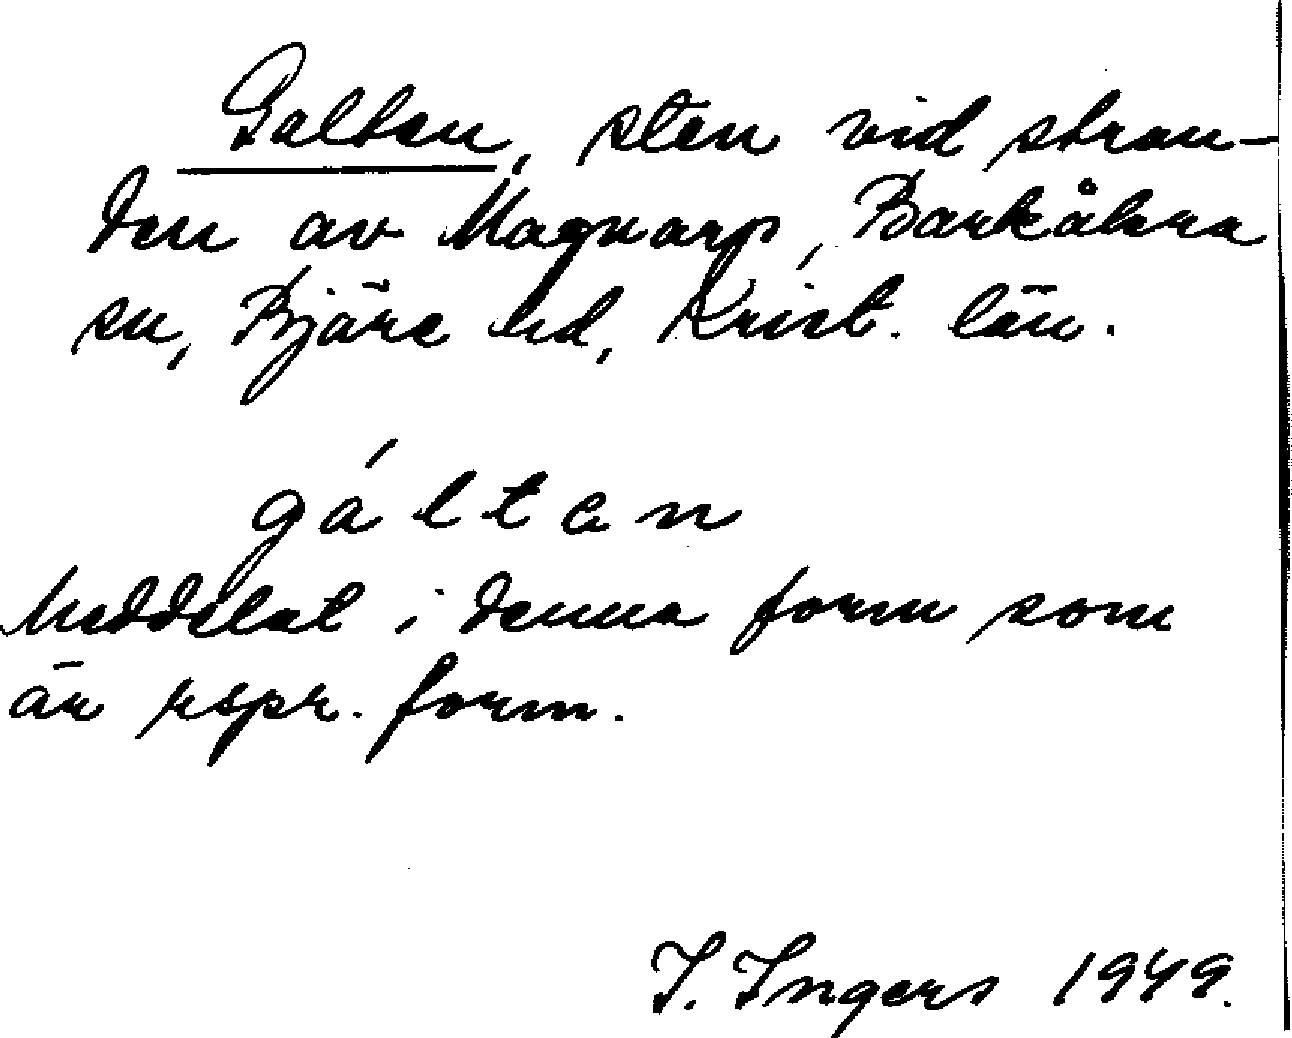 Galten, sten vid stran-
den av Magnarp, Barkåkra
sn, Bjäre hd, Krist. län.
gáltan
Meddelat i denna form som
är rspr. form.
I. Ingers 1949.